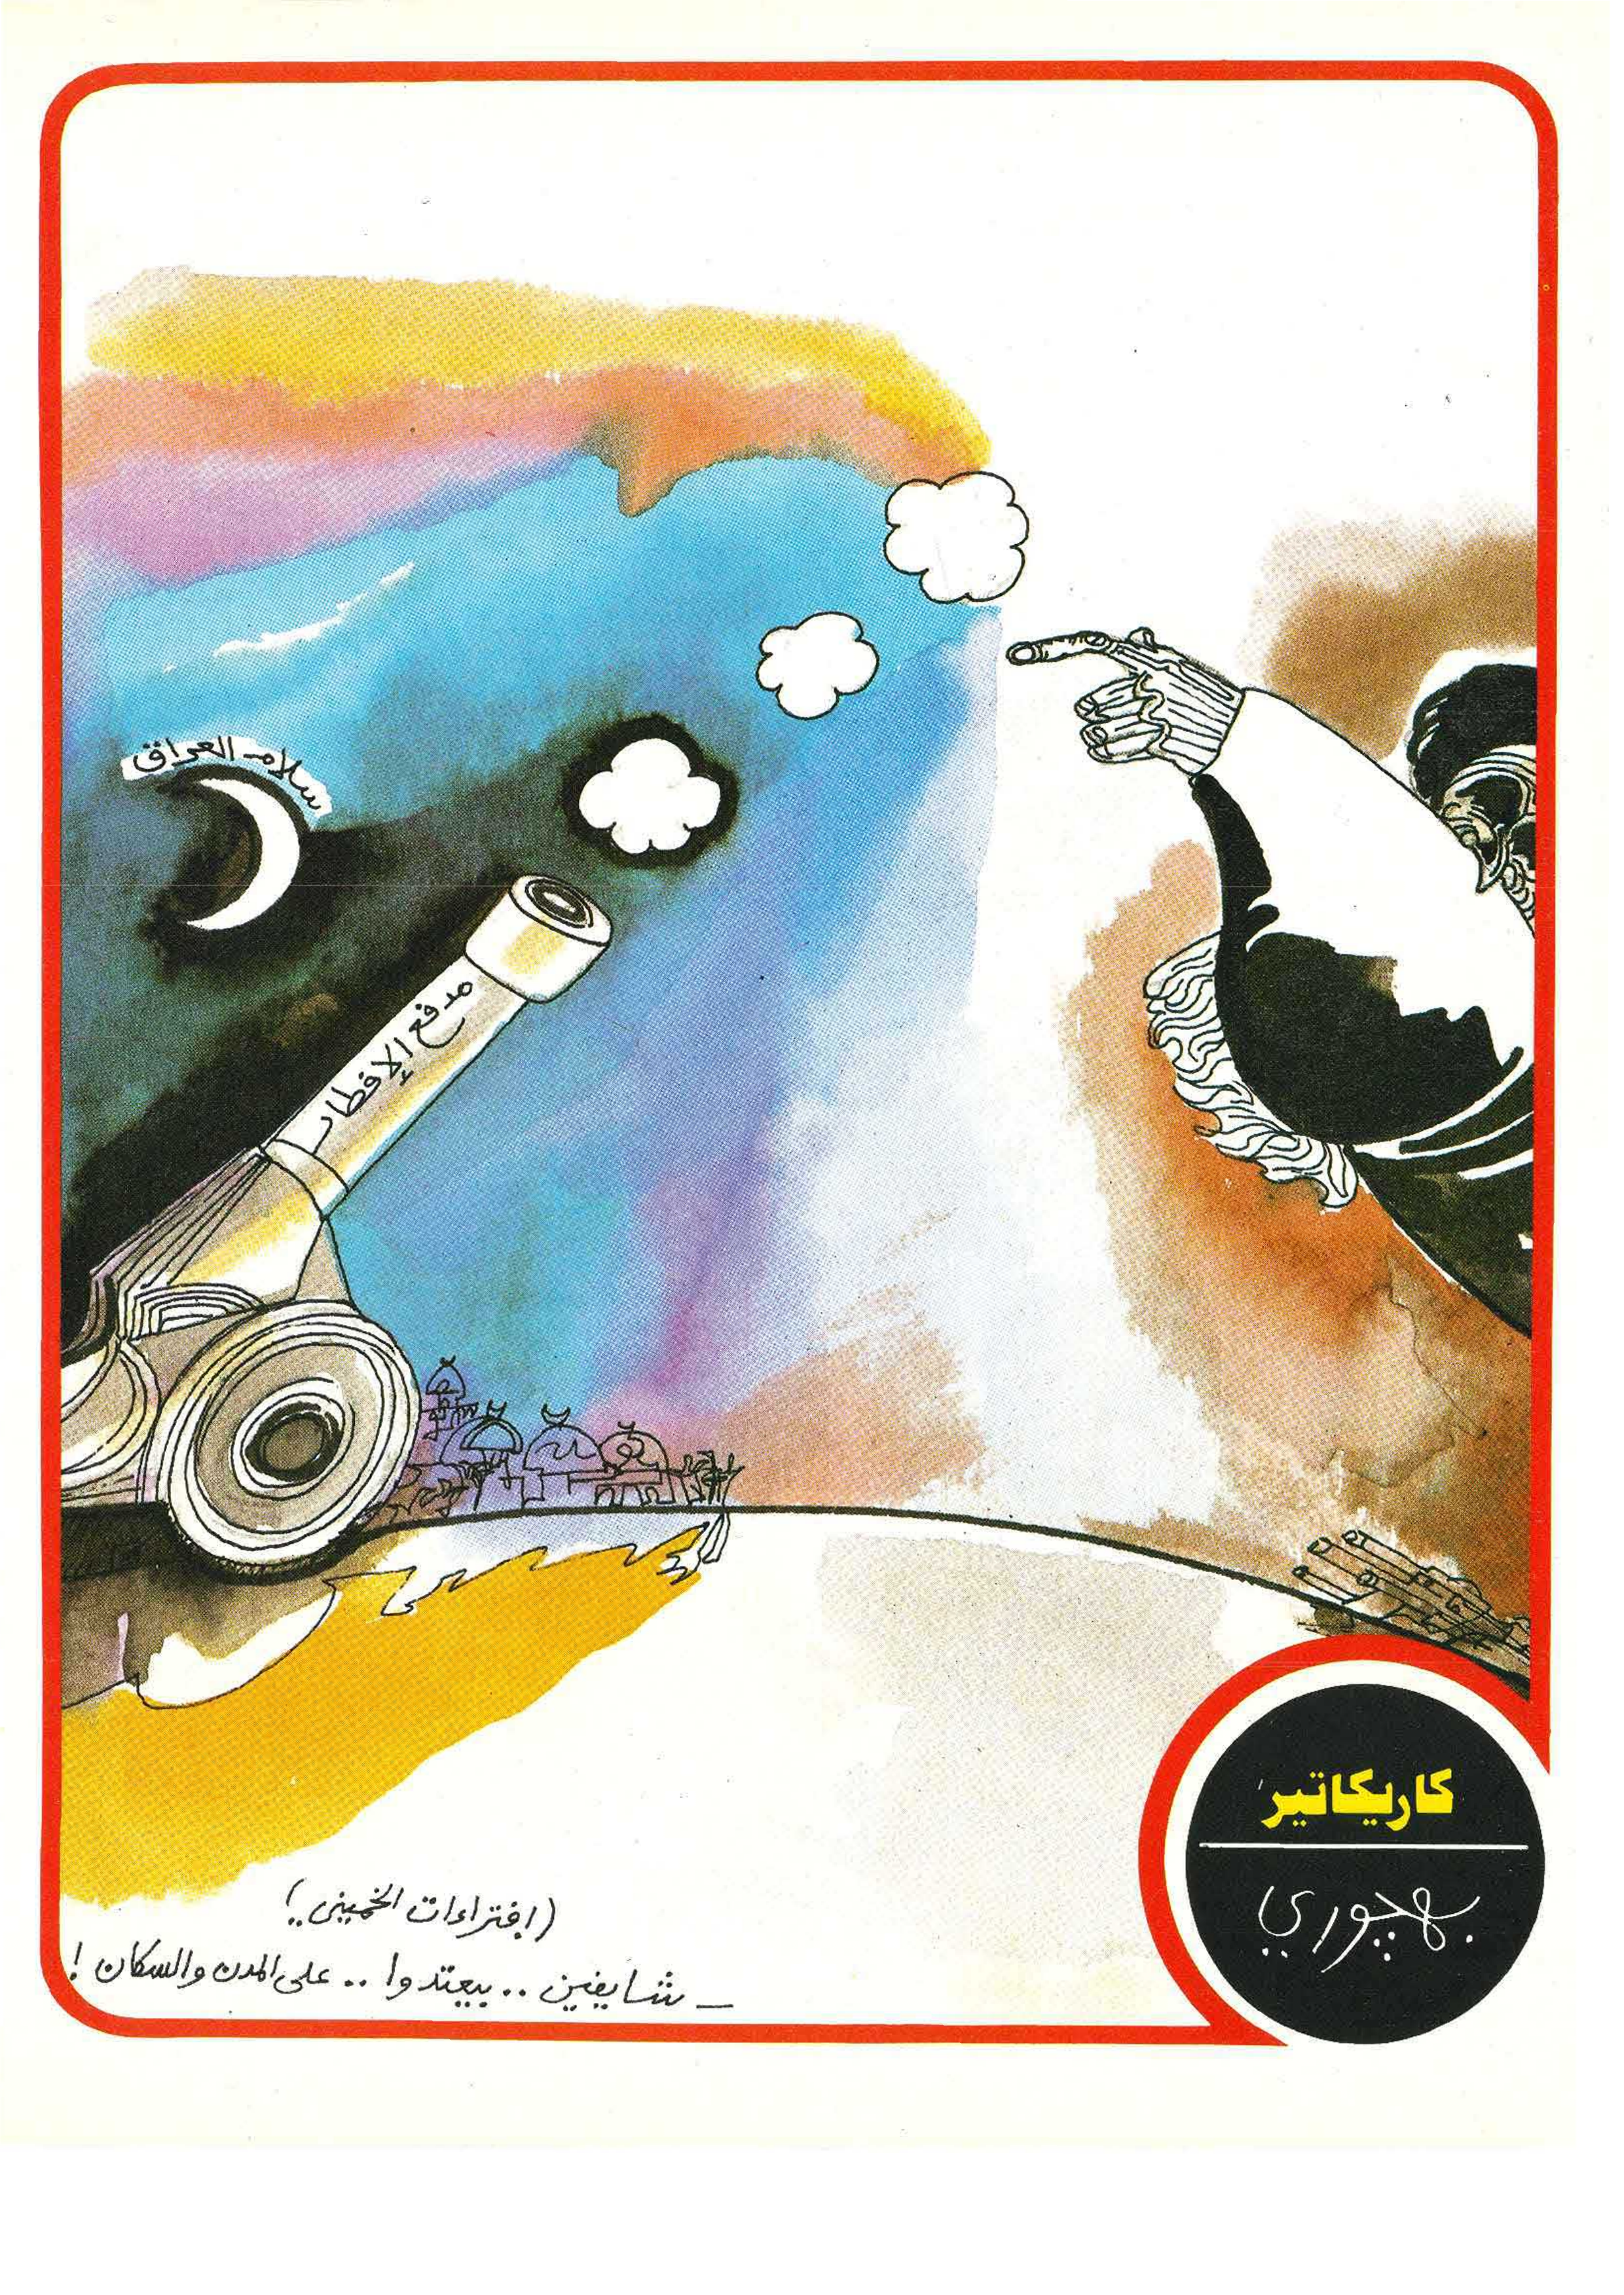 سلام العراق
مدفع الإفطار
(افتراءات الخميني..)
ـ شايفين .. بيعتدوا .. على المدن والسكان !
كاريكاتير
بهجوري